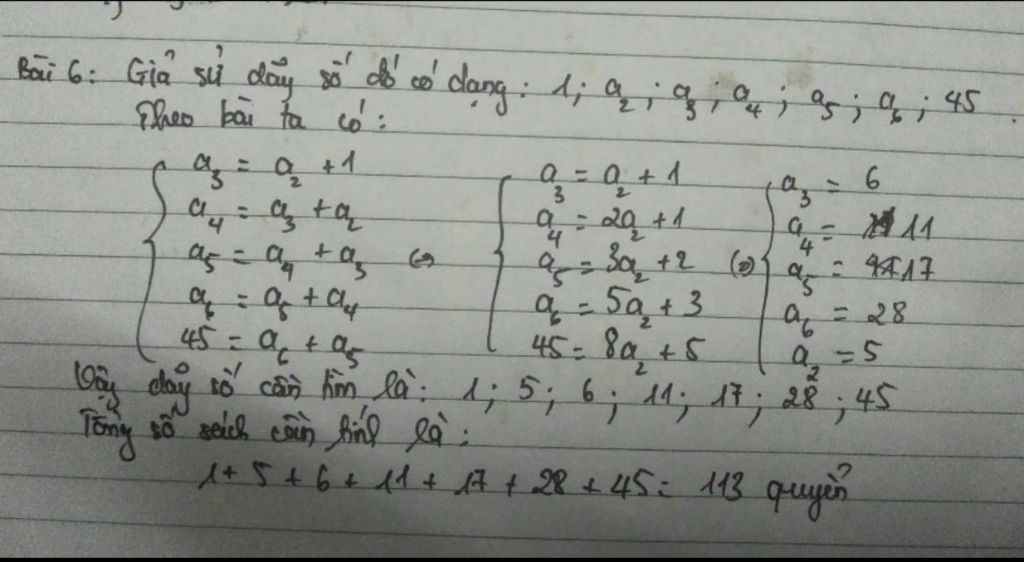 Bài 6: Giả sử dãy số đó có dạng: 1; a₂; a₃; a₄; a₅; a₆; 45.
Theo bài ta có:
a₃ = a₂ + 1
a₄ = a₃ + a₂
a₅ = a₄ + a₃
a₆ = a₅ + a₄
45 = a₆ + a₅
⇔
a₃ = a₂ + 1
a₄ = 2a₂ + 1
a₅ = 3a₂ + 2
a₆ = 5a₂ + 3
45 = 8a₂ + 5
⇔
a₃ = 6
a₄ = 11
a₅ = 17
a₆ = 28
a₂ = 5
Vậy dãy số cần tìm là: 1; 5; 6; 11; 17; 28; 45
Tổng số sách cần tính là:
1 + 5 + 6 + 11 + 17 + 28 + 45 = 113 quyển